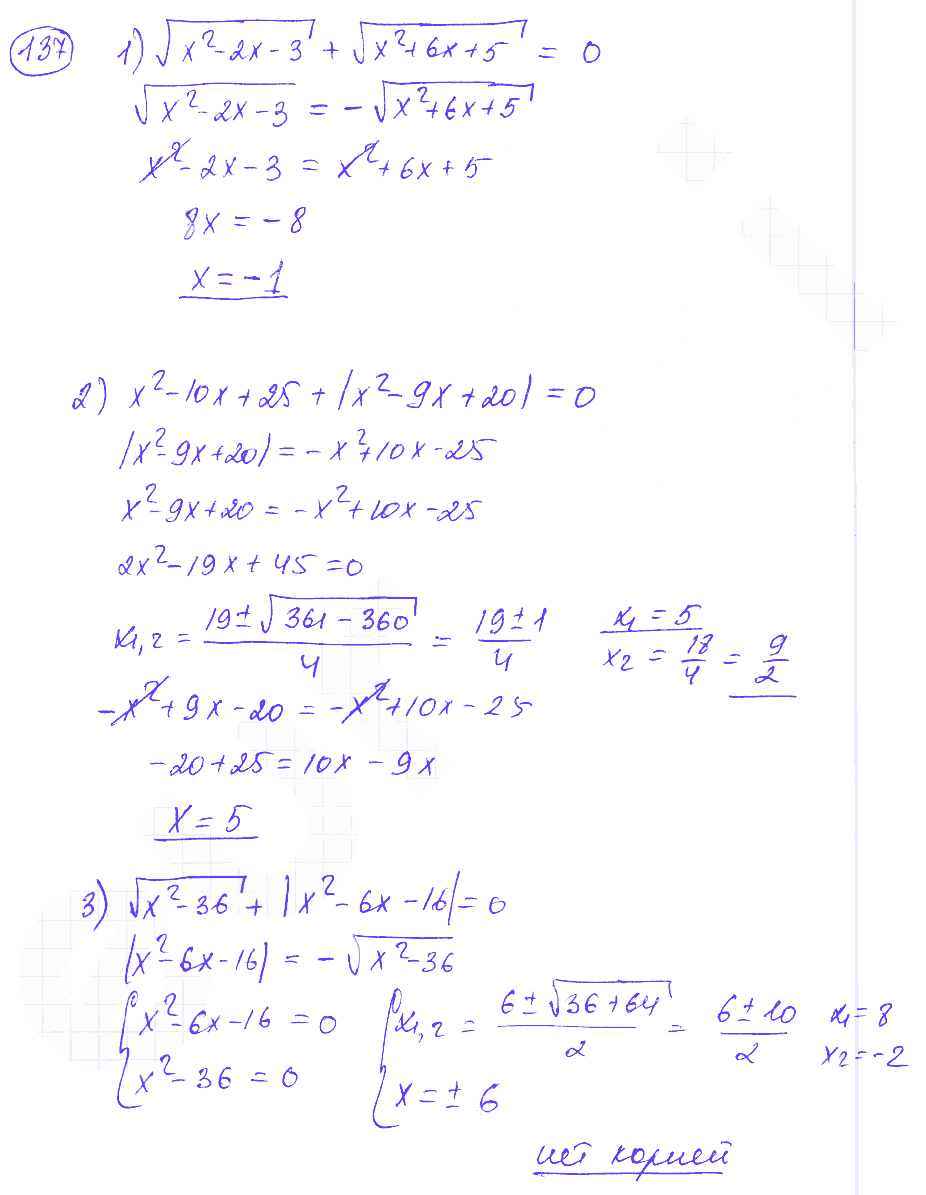 137 1) √(x²-2x-3) + √(x²+6x+5) = 0
√(x²-2x-3) = -√(x²+6x+5)
x²-2x-3 = x²+6x+5
8x = -8
x = -1
2) x²-10x+25 + |x²-9x+20| = 0
|x²-9x+20| = -x²+10x-25
x²-9x+20 = -x²+10x-25
2x²-19x+45=0
x₁,₂ = (19±√(361-360))/4 = (19±1)/4 x₁ = 5
x₂ = 18/4 = 9/2
-x²+9x-20 = -x²+10x-25
-20+25 = 10x-9x
x = 5
3) √(x²-36) + |x²-6x-16| = 0
|x²-6x-16| = -√(x²-36)
{ x²-6x-16 = 0 { x₁,₂ = (6±√(36+64))/2 = (6±10)/2 x₁=8
x²-36 = 0 x = ±6 x₂=-2
нет корней